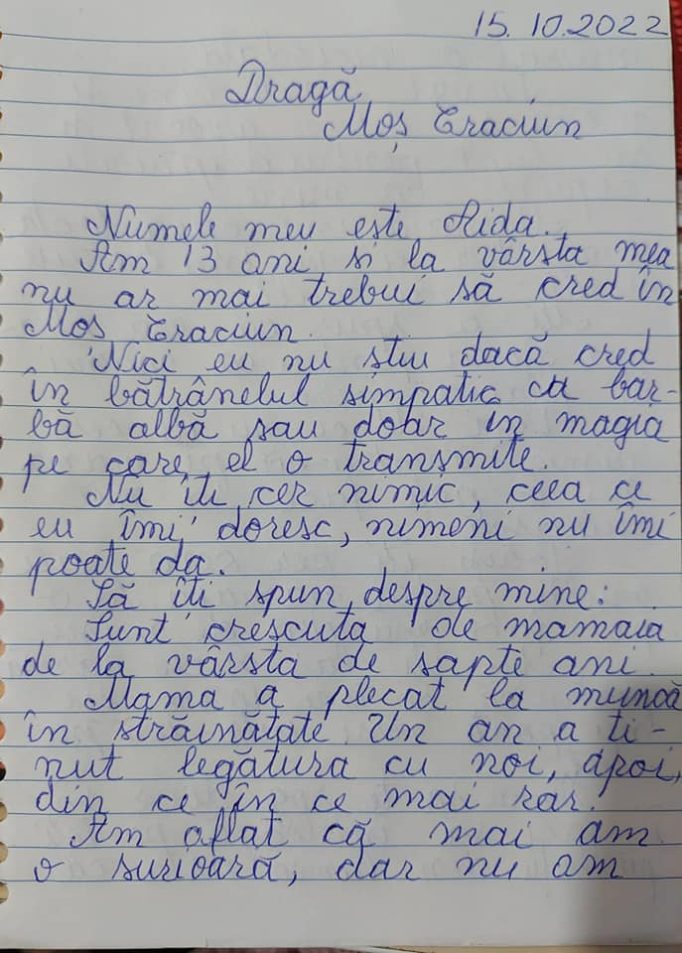 15.10.2022
Dragă
Moș Crăciun
Numele meu este Aida.
Am 13 ani si la vârsta mea
nu ar mai trebui să cred în
Mos Craciun.
Nici eu nu știu dacă cred
în bătrânelul simpatic cu bar-
bă albă sau doar in magia
pe care el o transmite.
Nu iti cer nimic, ceea ce
eu îmi doresc, nimeni nu îmi
poate da.
Să îti spun despre mine:
Sunt crescuta de mamaia
de la vârsta de sapte ani.
Mama a plecat la muncă
în străinătate. Un an a ti-
nut legătura cu noi, apoi,
din ce în ce mai rar.
Am aflat că mai am
o surioară, dar nu am